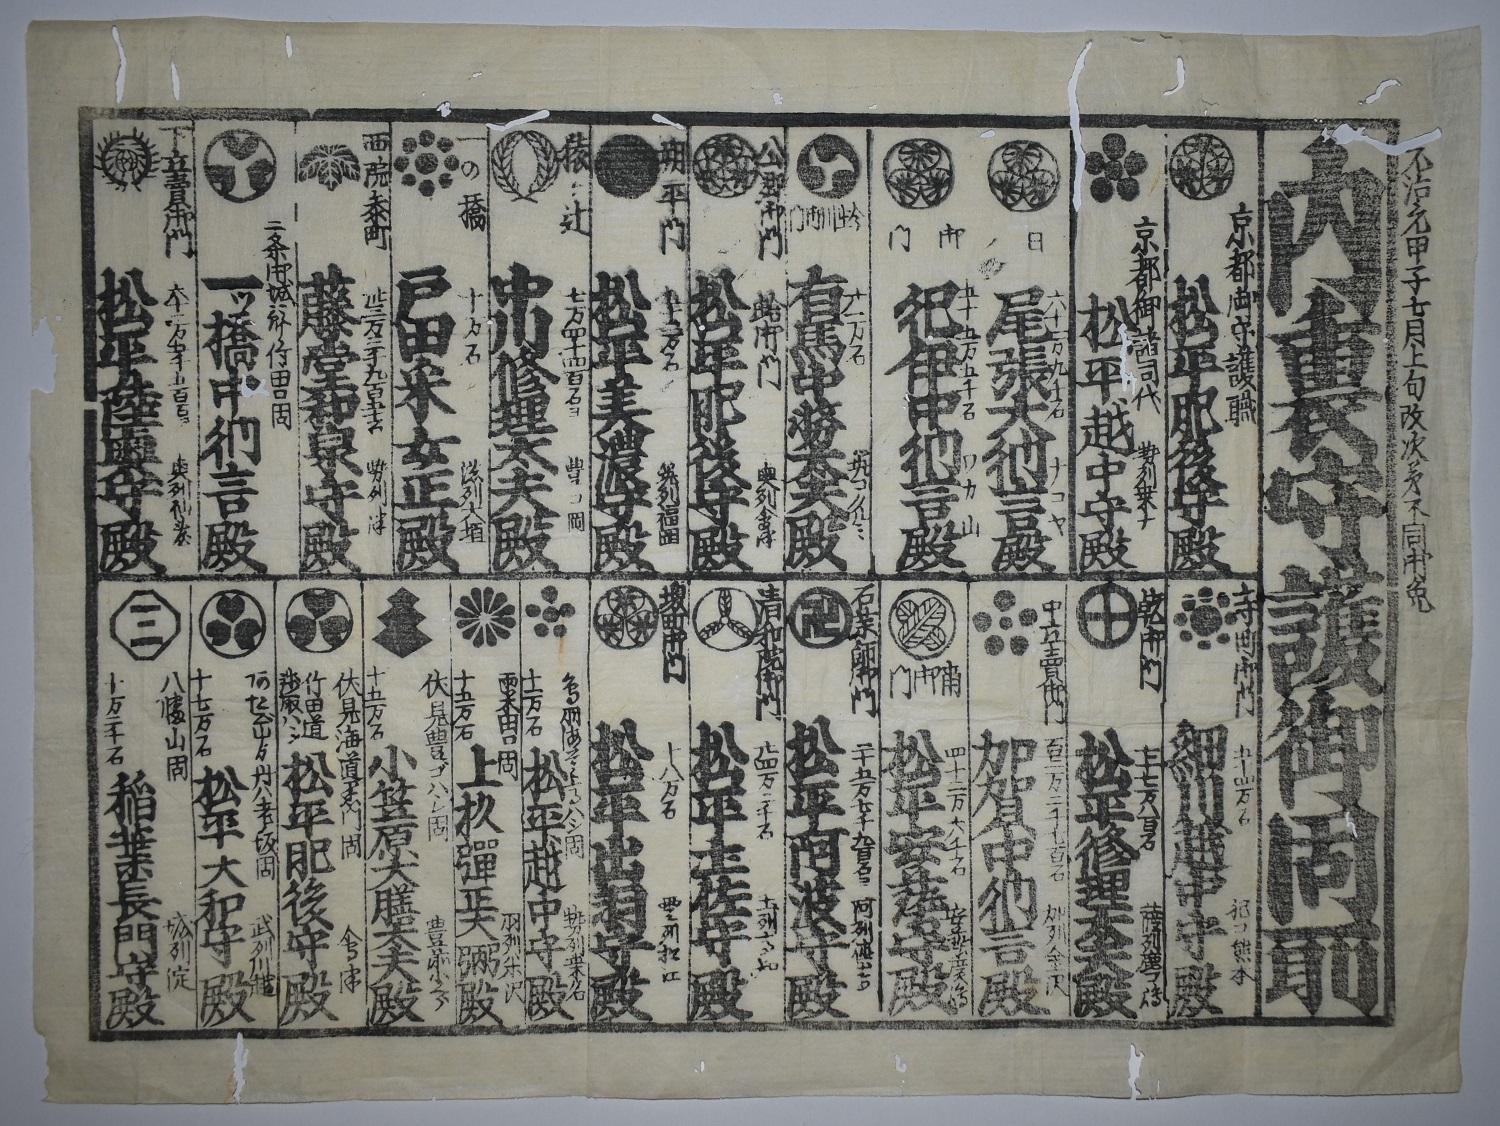 治元甲子七月上旬改次第不同御免
内裏守護御固前
京都御守護職
松平肥後守殿
京都御諸司代
勢列桑ナ
松平越中守殿
日
六十一万九千石
ナコヤ
尾張大納言殿
御門
五十五万五千石
ワカ山
紀伊中納言殿
蛤御門
廿一万石
有馬中務大夫殿
公郷御門
蛤御門
奥列会津
松平肥後守殿
朔平門
五十二万石
筑列福岡
松平美濃守殿
猿ヶ辻
七万四十四百石ヨ
豊コ岡
中川修理太夫殿
一の橋
十万石
濃列大垣
戸田釆女正殿
西院参町
卅二万三千九百五十石
勢列津
藤堂和泉守殿
二条御城外竹田口固
一ッ橋中納言殿
下立賣御門
六十二万五千五百石ヨ
奥列仙臺
松平陸奥守殿
寺町御門
五十四万石
ヒコ熊本
細川越中守殿
乾御門
七十七万八百石
薩列鹿子嶋
松平修理太夫殿
中立賣御門
百二万二千七百石
加列金沢
加賀中納言殿
南御門
四十二万六千石
安藝廣嶋
松平安藝守殿
石薬師御門
二十五万七千九百石ヨ
阿列徳しま
松平阿波守殿
清和院御門
廿四万二千石
土列
松平土佐守殿
堺町御門
十八万石
雲列松江
松平出羽守殿
十一万石
勢列桑名
松平越中守殿
栗田口固
十五万石
羽列米沢
上杦彈正大弼殿
伏見豊ゴハシ固
十五万石
豊前小クラ
小笠原大膳大夫殿
伏見海道ゑ門固
竹田道
会津
松平肥後守殿
十七万石
武列川越
松平大和守殿
八幡山固
十万二千石
城列淀
稲葉長門守殿